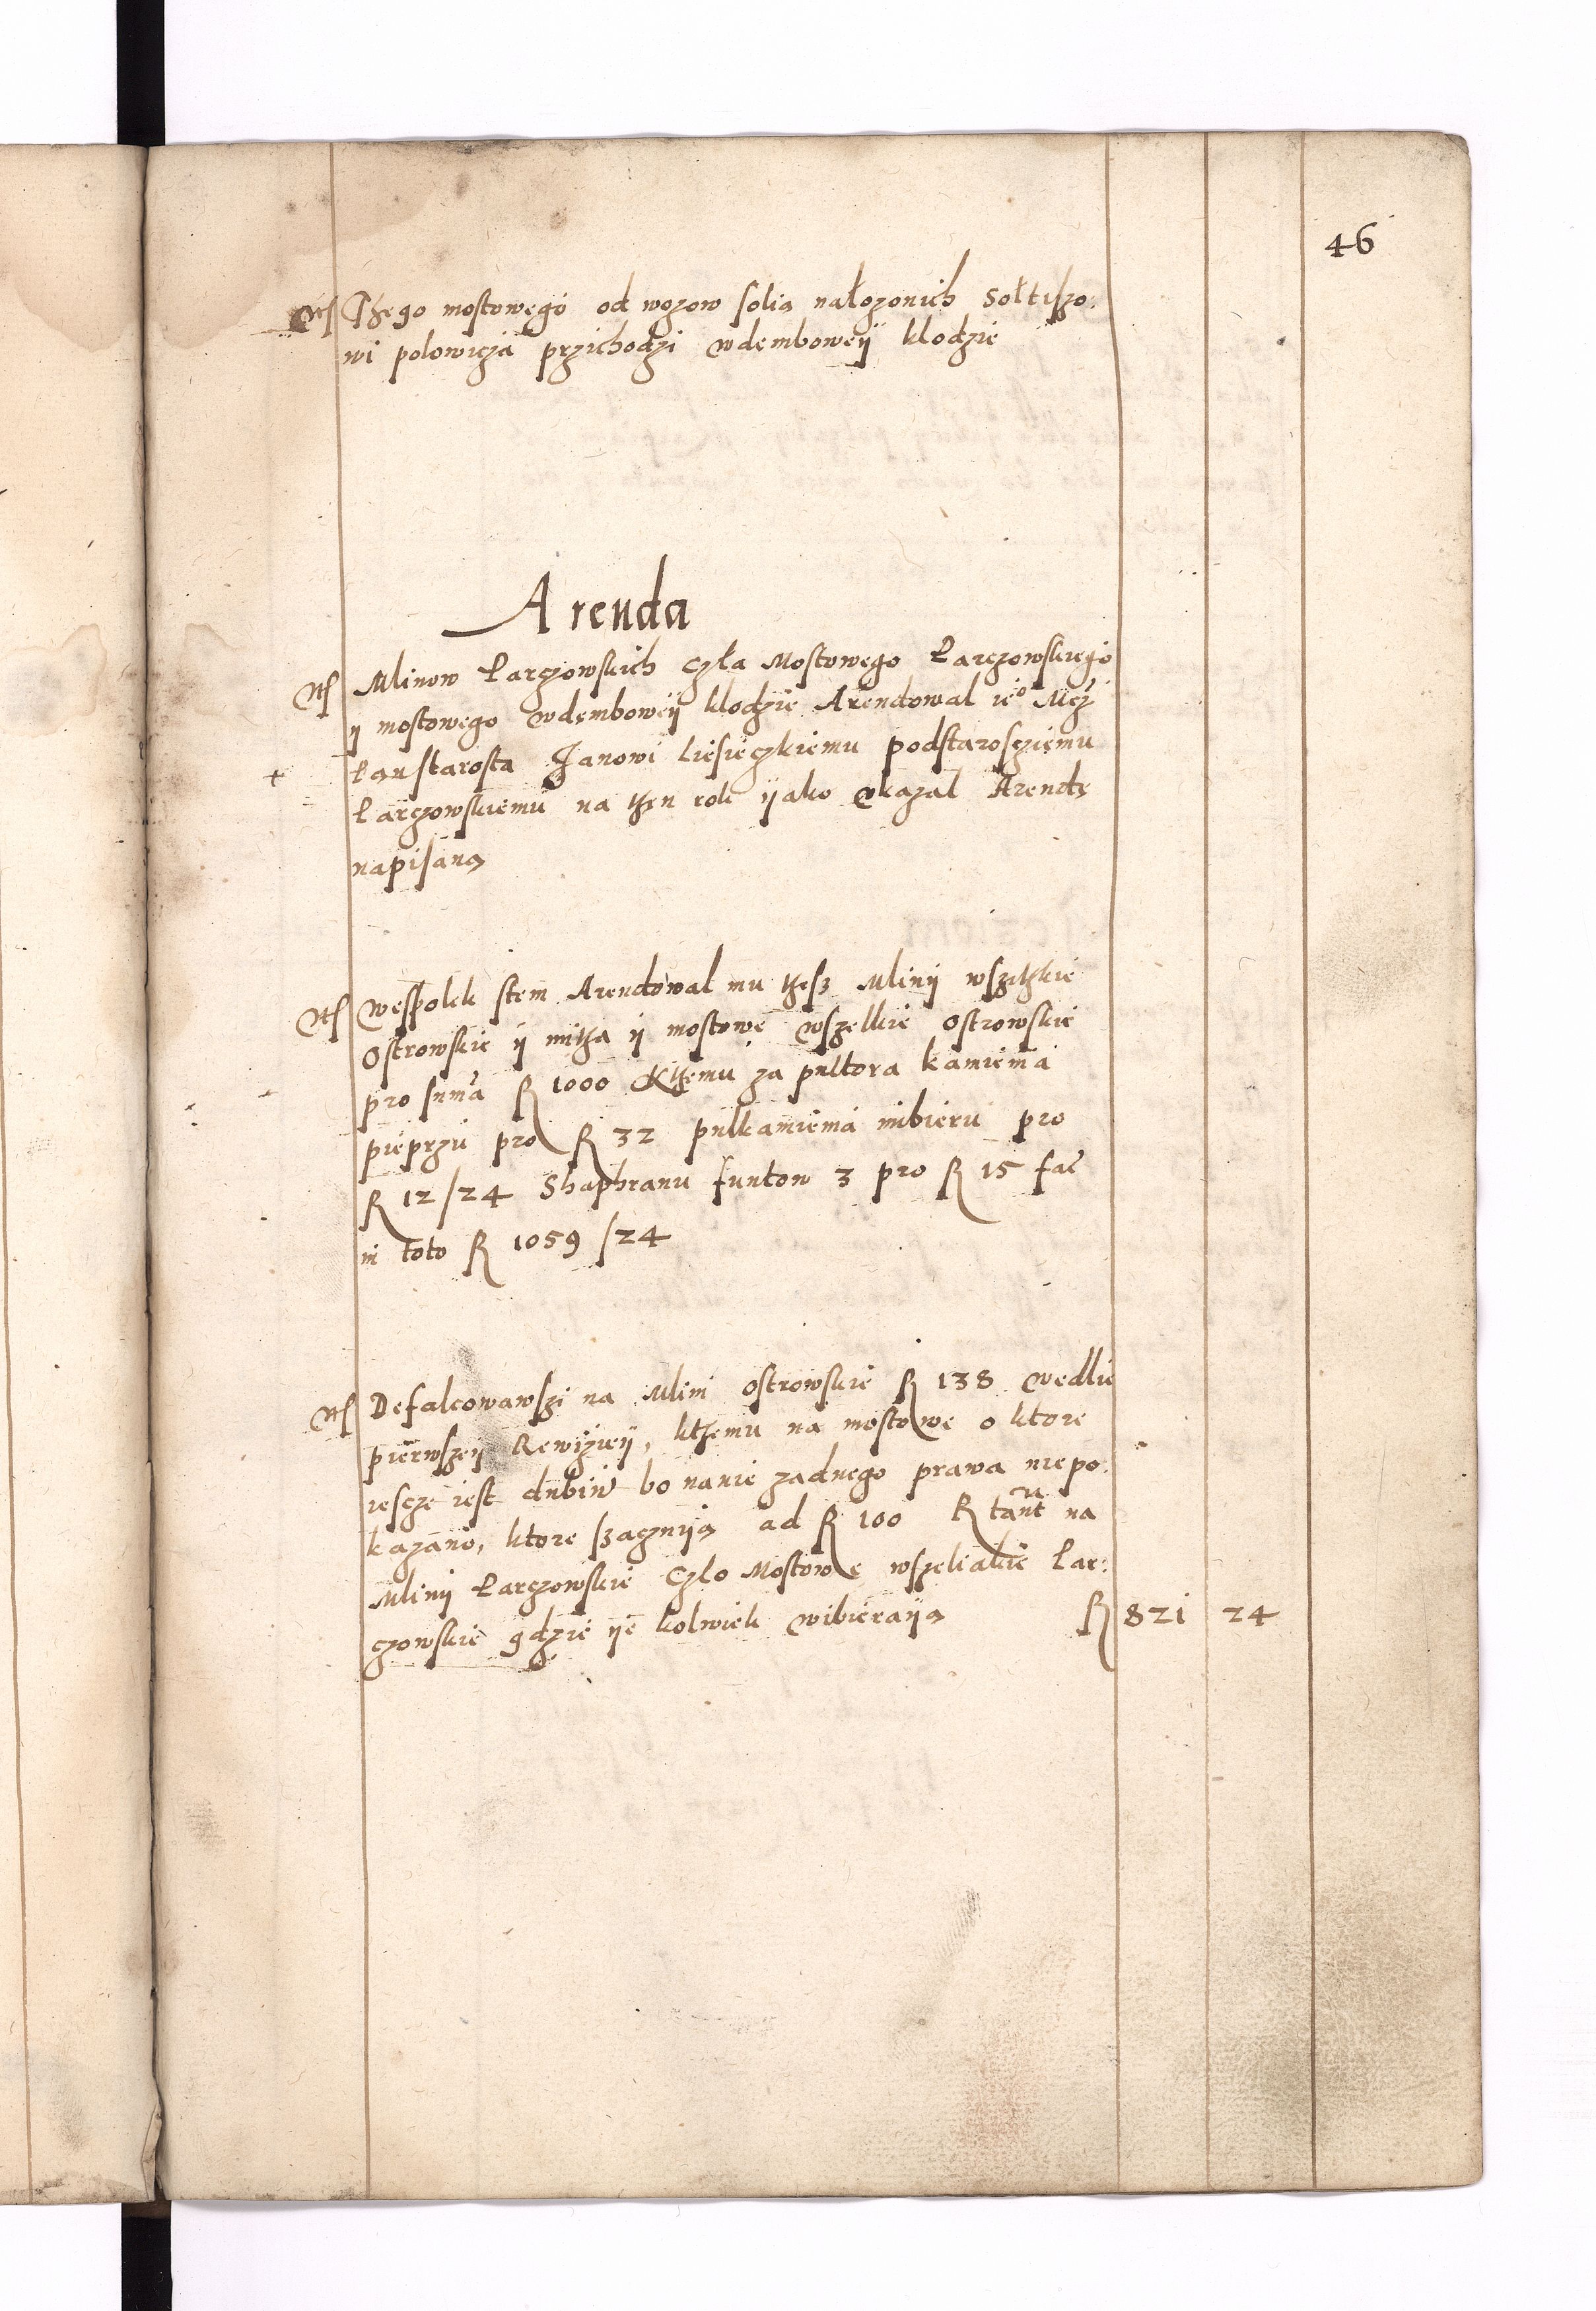 46
Nts Thego mostowego od wozow solią nałozonich Sołtiszo:
wi polowicza przichodzi wdemboweÿ klodzie
Arenda
Nts Mlinow Łarczowskich Czła Mostowego Łarczowskiego
ÿ mostowego wdemboweÿ klodzie Arendowal ie⁰ Mcz
Pan starosta Janowi Liesieczkiemu podstarosczięmu
Łarczowskiemu na then rok ÿako okazal Arendę
napisaną
Nts wespolek stem Arendowal mu thesz Mlinÿ wszithkie
Ostrowskie ÿ mitha ÿ mostowe wszelkie Ostrowskie
pro suma R 1000 Kthemu za pultora kamienia
pieprzu pro R 32 pulkamienia inbieru pro
R 12/24 Shaphranu funtow 3 pro R 15 fac
in toto R 1059/24
Nts Defalcowawszi na Mlini Ostrowskie R 138 wedlie
pierwszeÿ Rewizieÿ, kthemu na mostowe o ktore
iescze iest dubiu bo nanie zadnego prawa niepo:
kazano, ktore szacznÿą ad R 100 R tant na
Mlinÿ Łarczowskie Czlo Mostowe wszeliakie Łar:
czowskie gdzie ÿe kolwiek wibieraÿą R 821 24